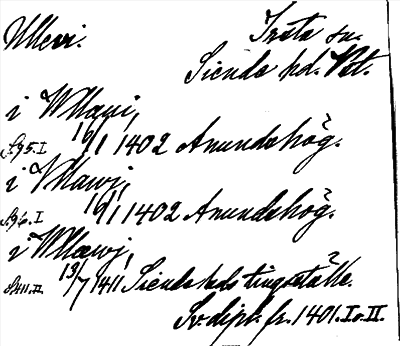 Ullevi. Irsta sn.
Siende hd. Vst.
i Wllaui,
s. 95. I 16/1 1402 Anundshög.
i Vllawi,
s. 96. I 16/1 1402 Anundshög.
i Wllæwj,
13/7 1411 Siende hds tingställe.
Sv. dipl. fr. 1401. I o. II.